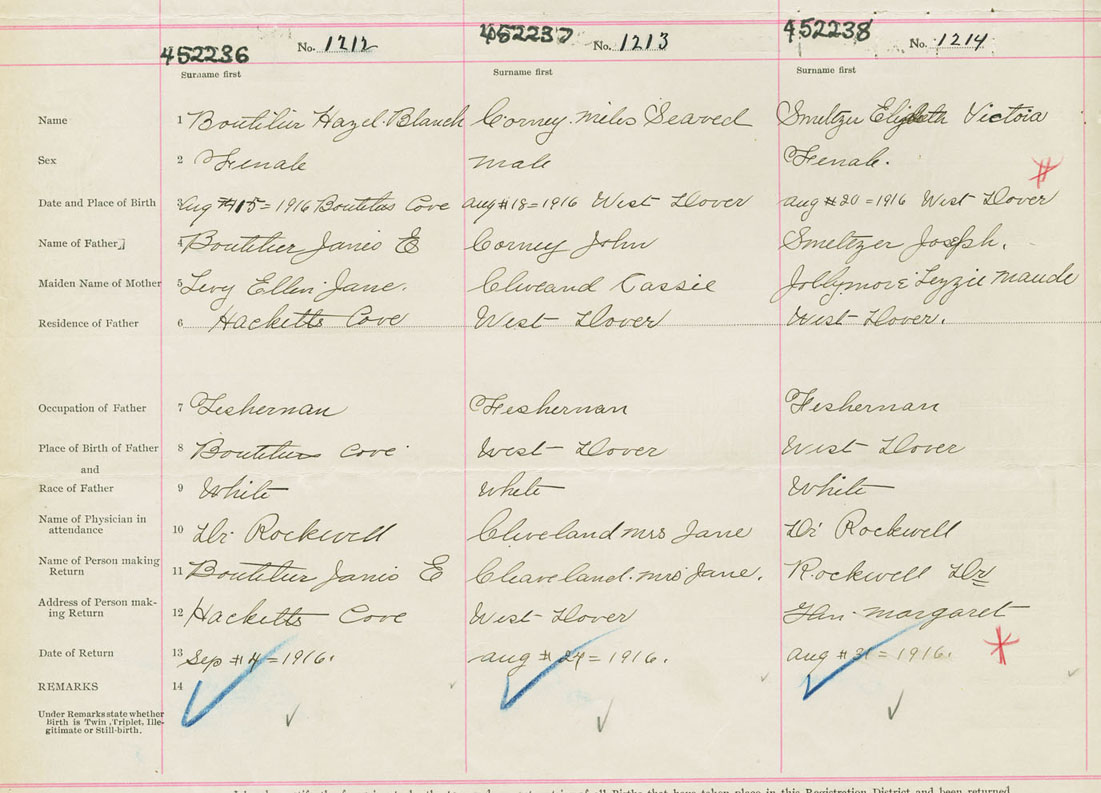 452236 No. 1212 452237 No. 1213 452238 No. 1214
Surname first Surname first Surname first
Name 1 Boutilier Hazel Blanch Corney Miles Seaved Smeltzer Elizbeth Victoia
Sex 2 Female male Female.
Date and Place of Birth 3 Aug #15 = 1916 Boutilus Cove aug #18 = 1916 West Dover aug #20 = 1916 West Dover
Name of Father 4 Boutilier Janis E Corney John Smeltzer Joseph.
Maiden Name of Mother 5 Levy Ellen Jane. Cliveand Cassie Jollymore Lezzie Maude
Residence of Father 6 Hacketts Cove West Dover West Dover.
Occupation of Father 7 Fesherman Fesherman Fesherman
Place of Birth of Father 8 Boutilus Cove West Dover West Dover
and
Race of Father 9 White White White
Name of Physician in
attendance 10 Dr Rockwell Cleveland Mrs Jane Dr Rockwell
Name of Person making
Return 11 Boutilier Janis E Cleaveland. Mrs Jane. Rockwell Dr
Address of Person mak-
ing Return 12 Hacketts Cove West Dover Glen Margaret
Date of Return 13 Sep #4 = 1916. aug # 24 = 1916. aug # 31 = 1916.
REMARKS 14
Under Remarks state whether
Birth is Twin, Triplet, Ille-
gitimate or Still-birth.